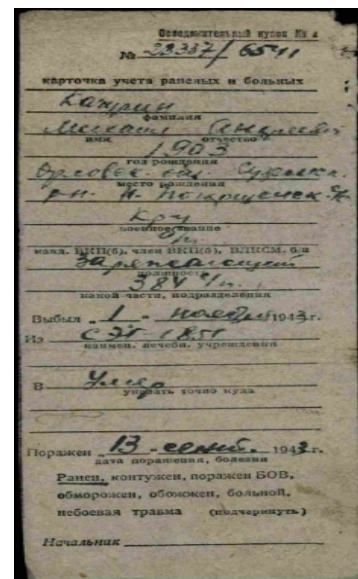 Осведомительный купон № 2
№ 23337/6541
карточка учета раненых и больных
фамилия
Михаил Андреев
имя отчество
1903
год рождения
Орловск. обл.
место рождения
р-н.
Кр-ц
военное звание
б/п
канд. ВКП(б), член ВКП(б), ВЛКСМ, б/п
заряжающий
должность
384
какой части, подразделения
Выбыл „ 1 " ноября 1943 г.
Из СЭГ-1851
наимен. лечебн. учреждения
В Умер
указать точно куда
Поражен „ 13 " сент. 1943 г.
дата поражения, болезни
Ранен, контужен, поражен БОВ,
обморожен, обожжен, больной,
небоевая травма (подчеркнуть)
Начальник